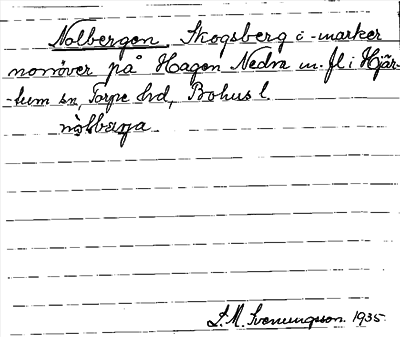 Nolbergen Skogsberg i -marker
norröver på Hagen Nedra m.fl i Hjär-
-tum sn, Torpe hrd, Bohus l
nòlbærja
L. M. Svenungsson 1935